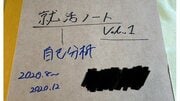 就活ノート
Vol.1
自己分析
2020.8〜
2020.12